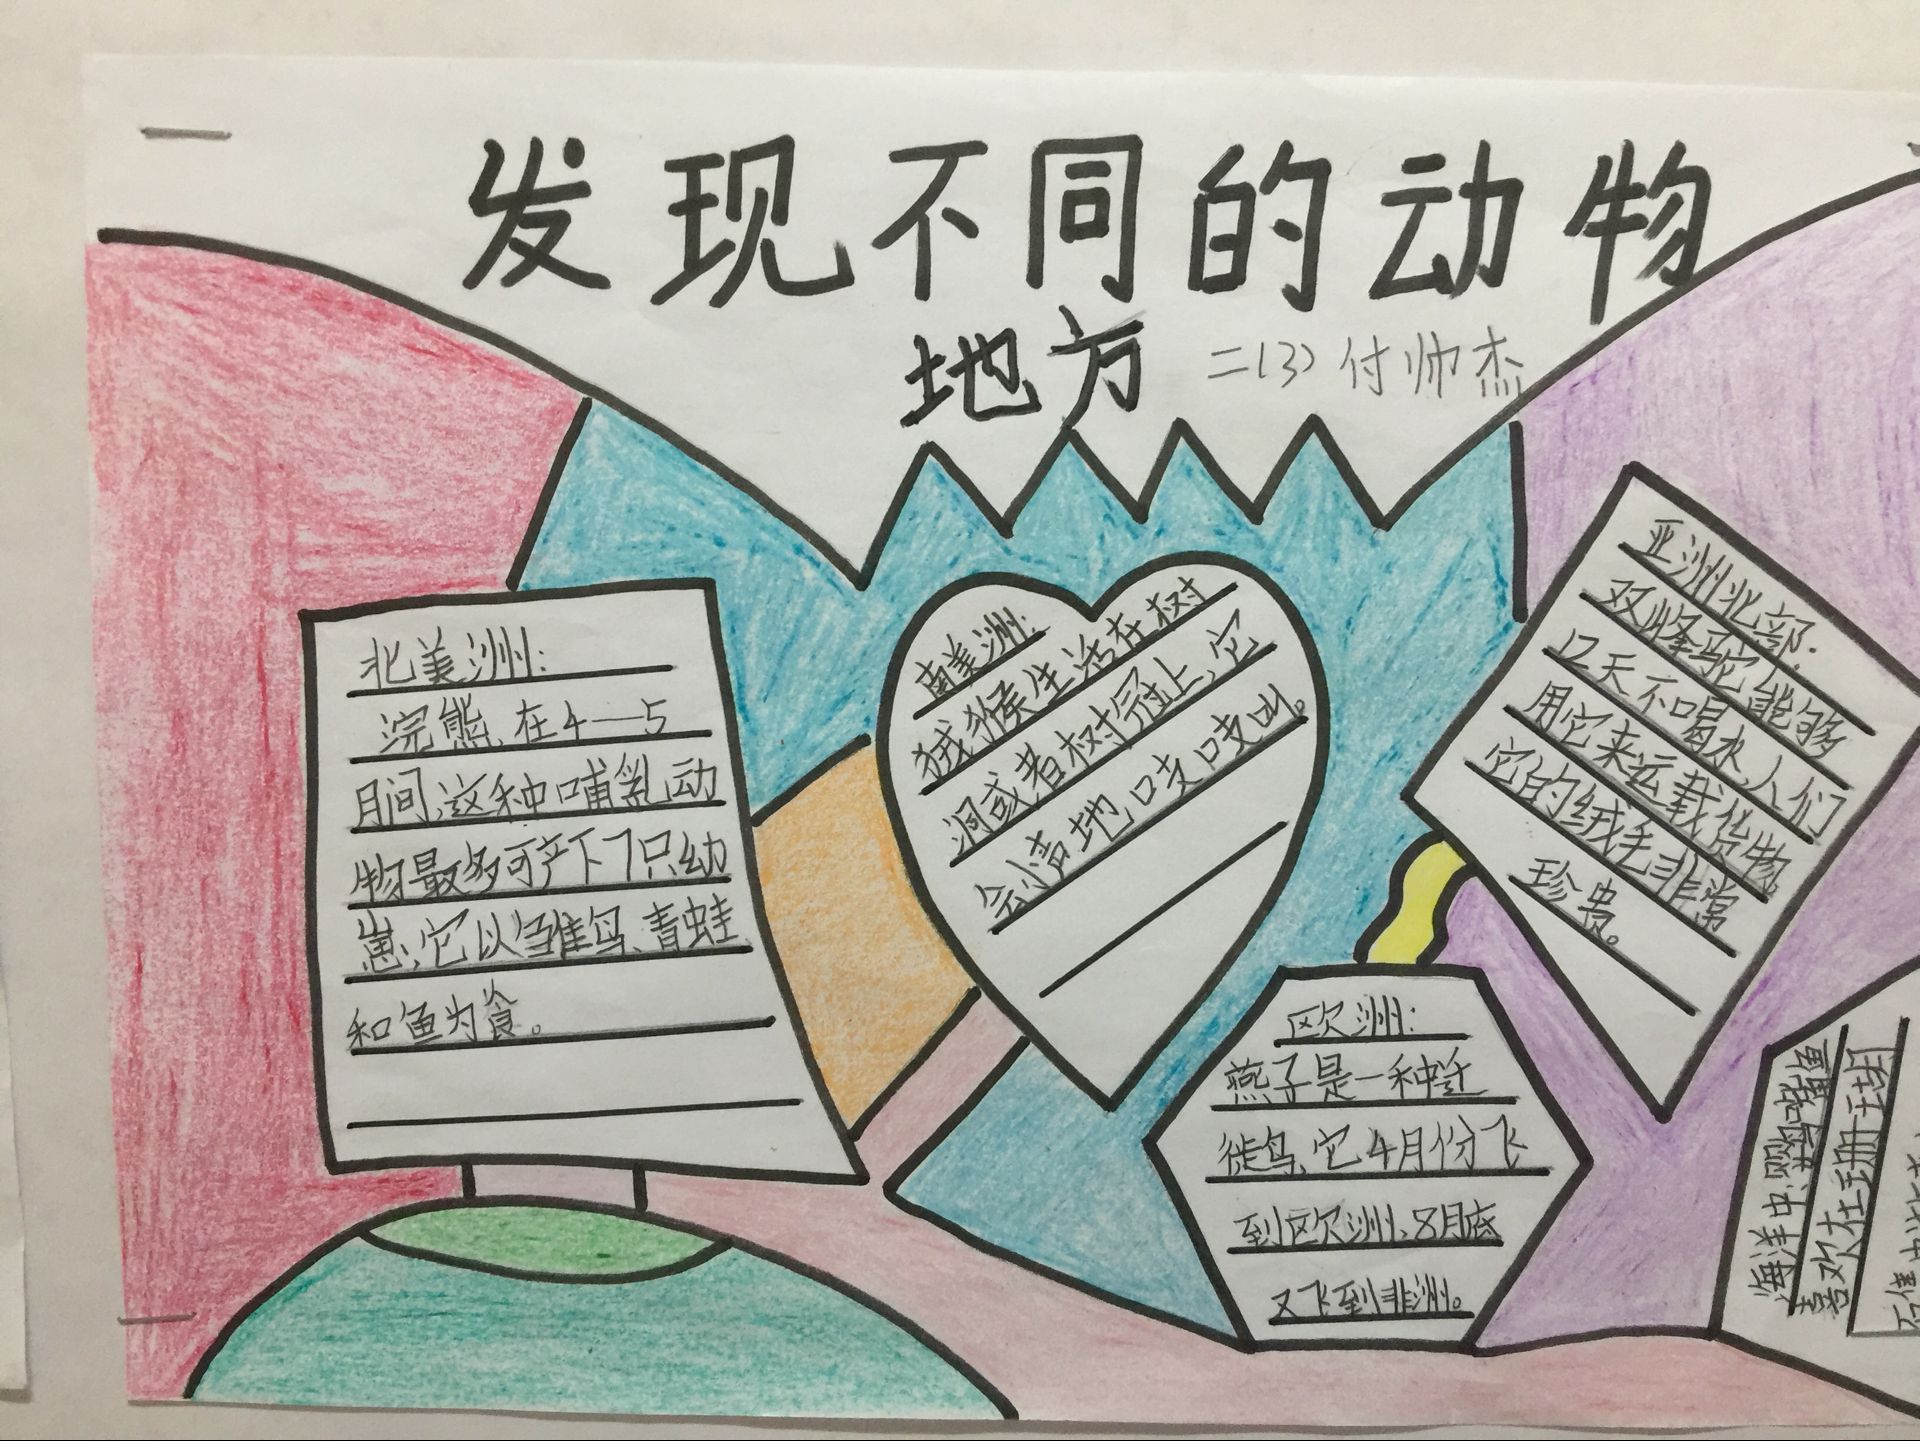 发现不同的动物
地方 二(3) 付帅杰
北美洲:
浣熊,在4—5
月间,这种哺乳动
物最多可产下7只幼
崽,它以雏鸟、青蛙
和鱼为食。
南美洲:
狨猴生活在树
洞或者树冠上,它
会小声地吱吱叫。
亚洲北部:
双峰驼能够
12天不喝水,人们
用它来运载货物,
它的绒毛非常
珍贵。
欧洲:
燕子是一种迁
徙鸟,它4月份飞
到欧洲,8月底
又飞到非洲。
海洋中,鹦嘴鱼
喜欢在珊瑚